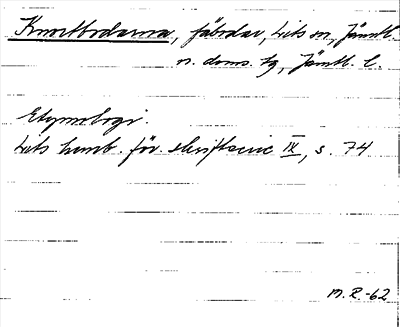 Knortbodarna, fäbodar, Lits sn, Jämtl.
n. doms. tg, Jämtl. l.
Etymologi.
Lits hemb. för. skriftserie IX, s. 74
M.R.-62